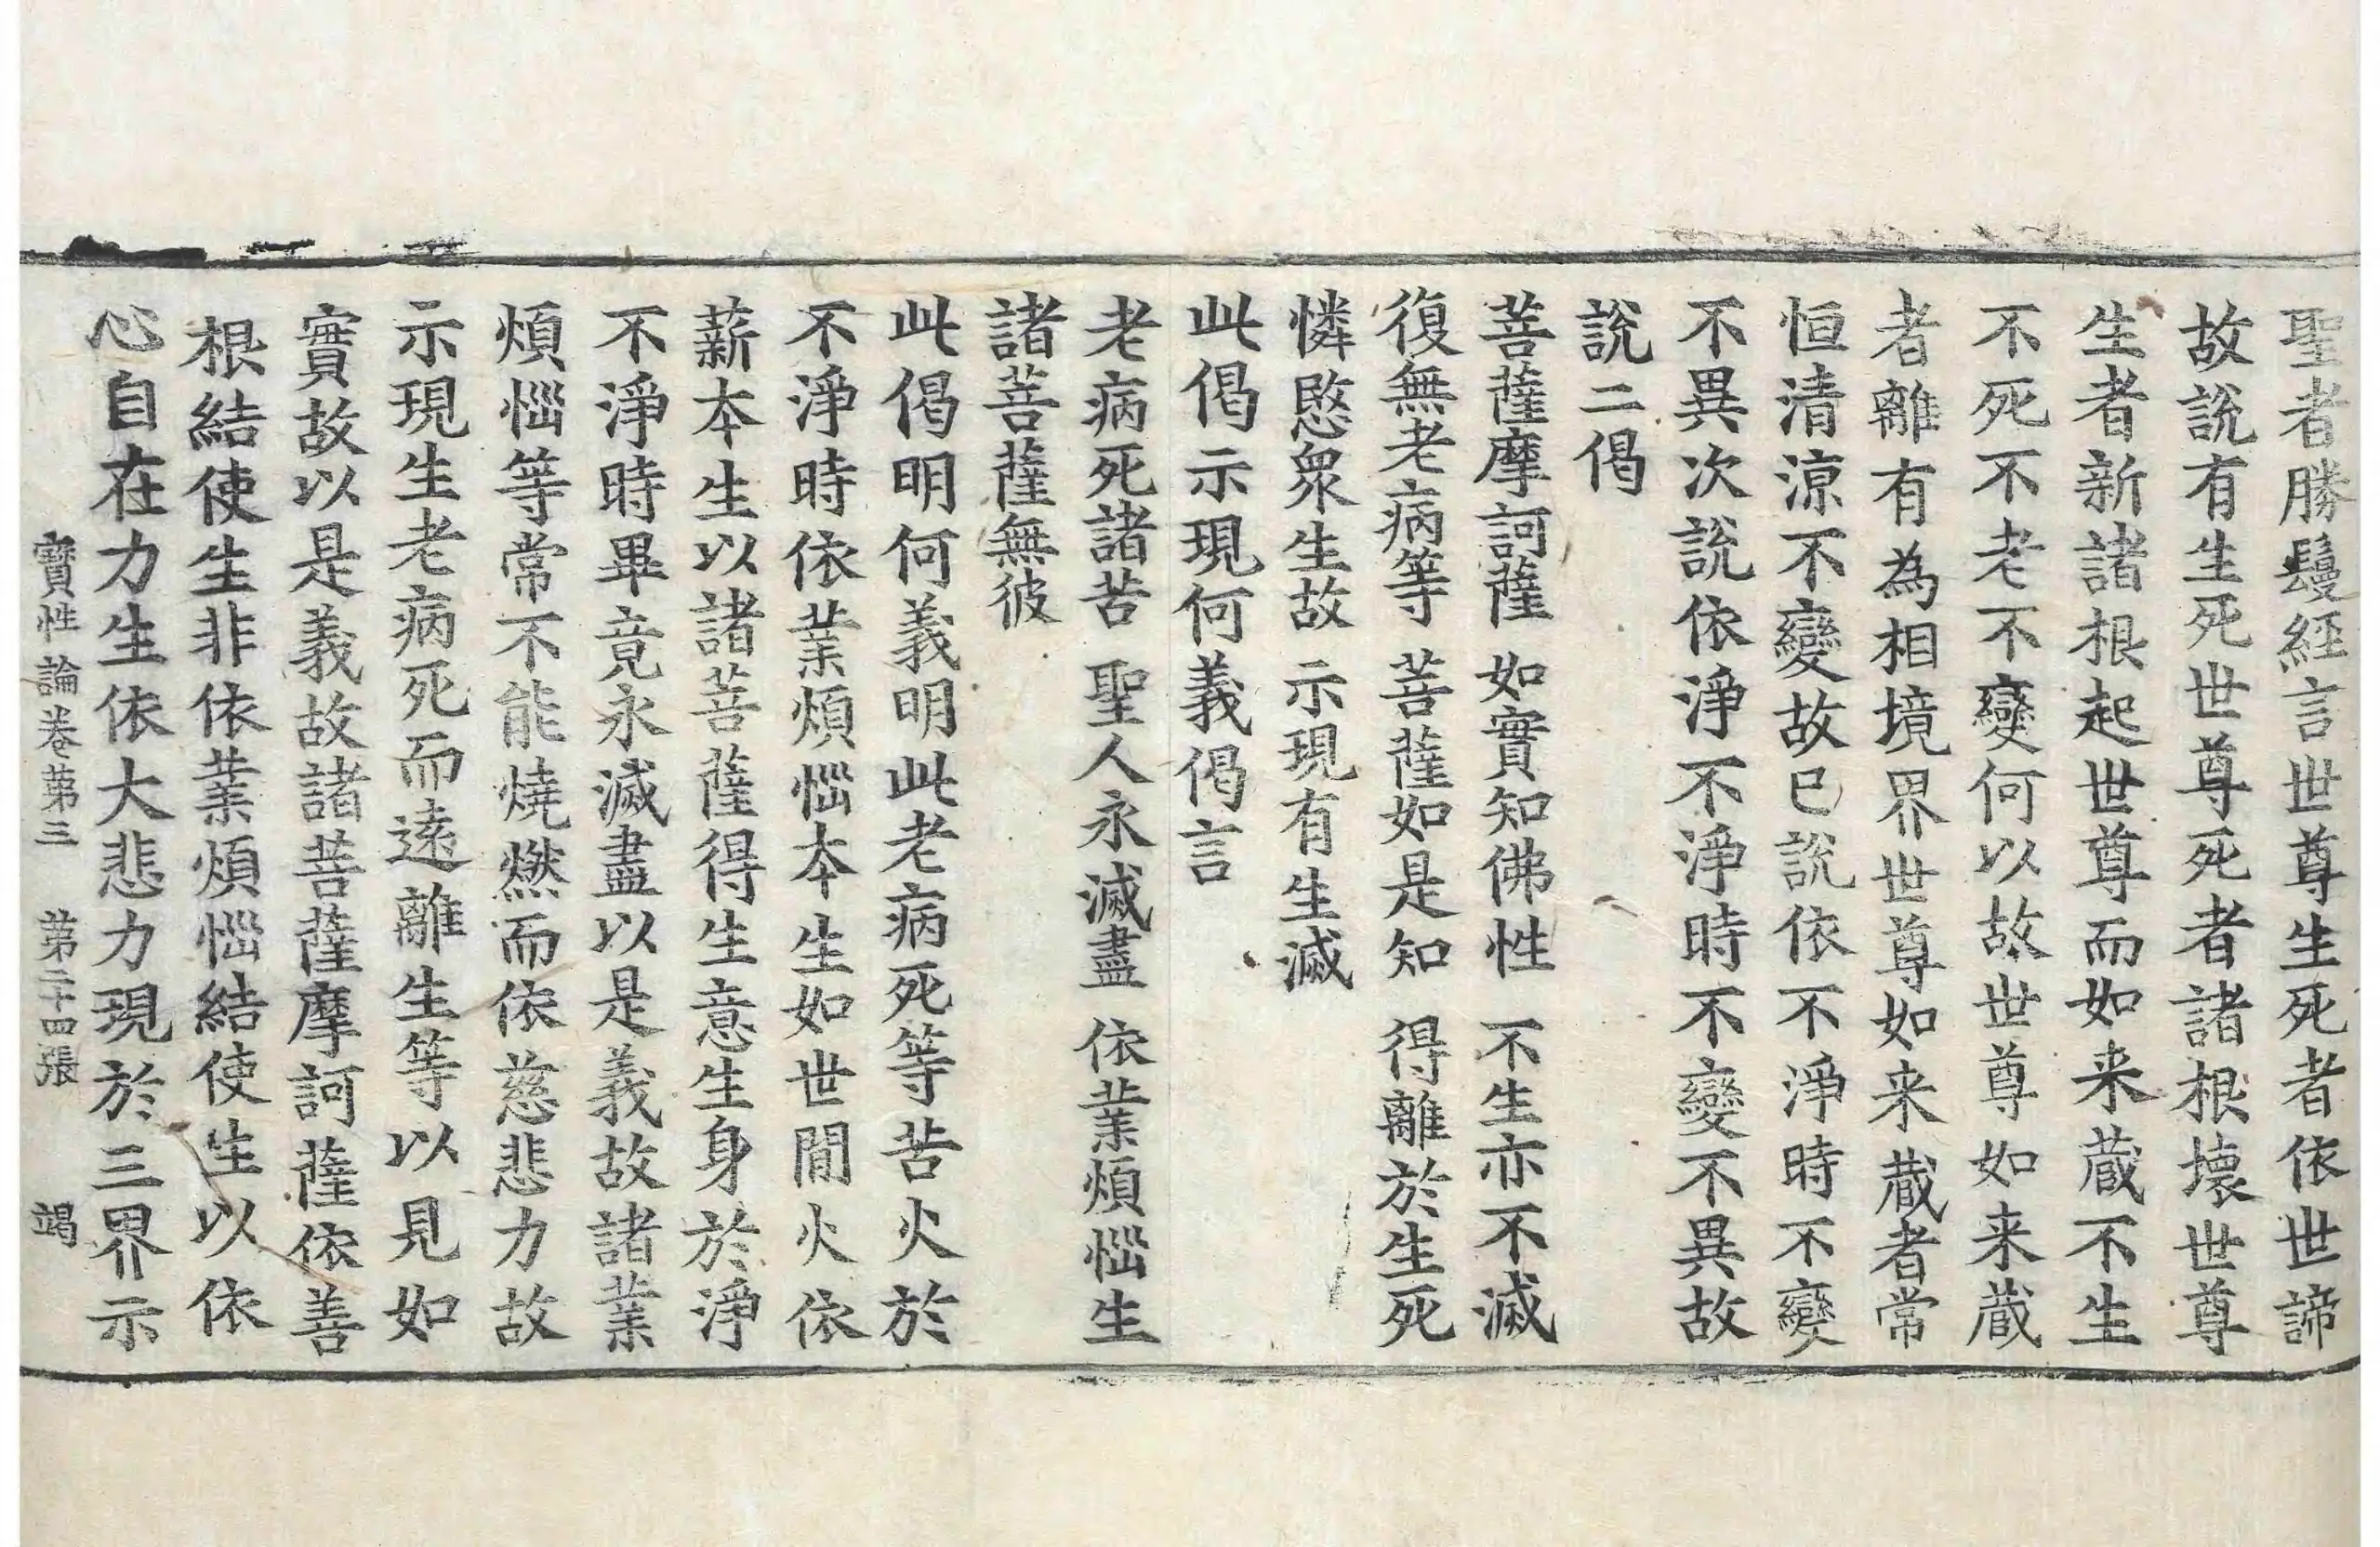 聖者勝鬘經言世尊生死者依世諦
故說有生死世尊死者諸根壞世尊
生者新諸根起世尊而如来蔵不生
不死不老不變何以故世尊如来蔵
者離有為相境界世尊如来蔵者常
恒清涼不變故已說依不淨時不變
不異次說依淨不淨時不變不異故
說二偈
菩薩摩訶薩 如實知佛性 不生亦不滅
復無老病等 菩薩如是知 得離於生死
憐愍衆生故 示現有生滅
此偈示現何義偈言
老病死諸苦 聖人永滅盡 依業煩惱生
諸菩薩無彼
此偈明何義明此老病死等苦火於
不淨時依業煩惱本生如世間火依
薪本生以諸菩薩得生意生身於淨
不淨時畢竟永滅盡以是義故諸業
煩惱等常不能燒燃而依慈悲力故
示現生老病死而遠離生等以見如
實故以是義故諸菩薩摩訶薩依善
根結使生非依業煩惱結使生以依
心自在力生依大悲力現於三界示
寶性論卷第三 第二十四張 竭